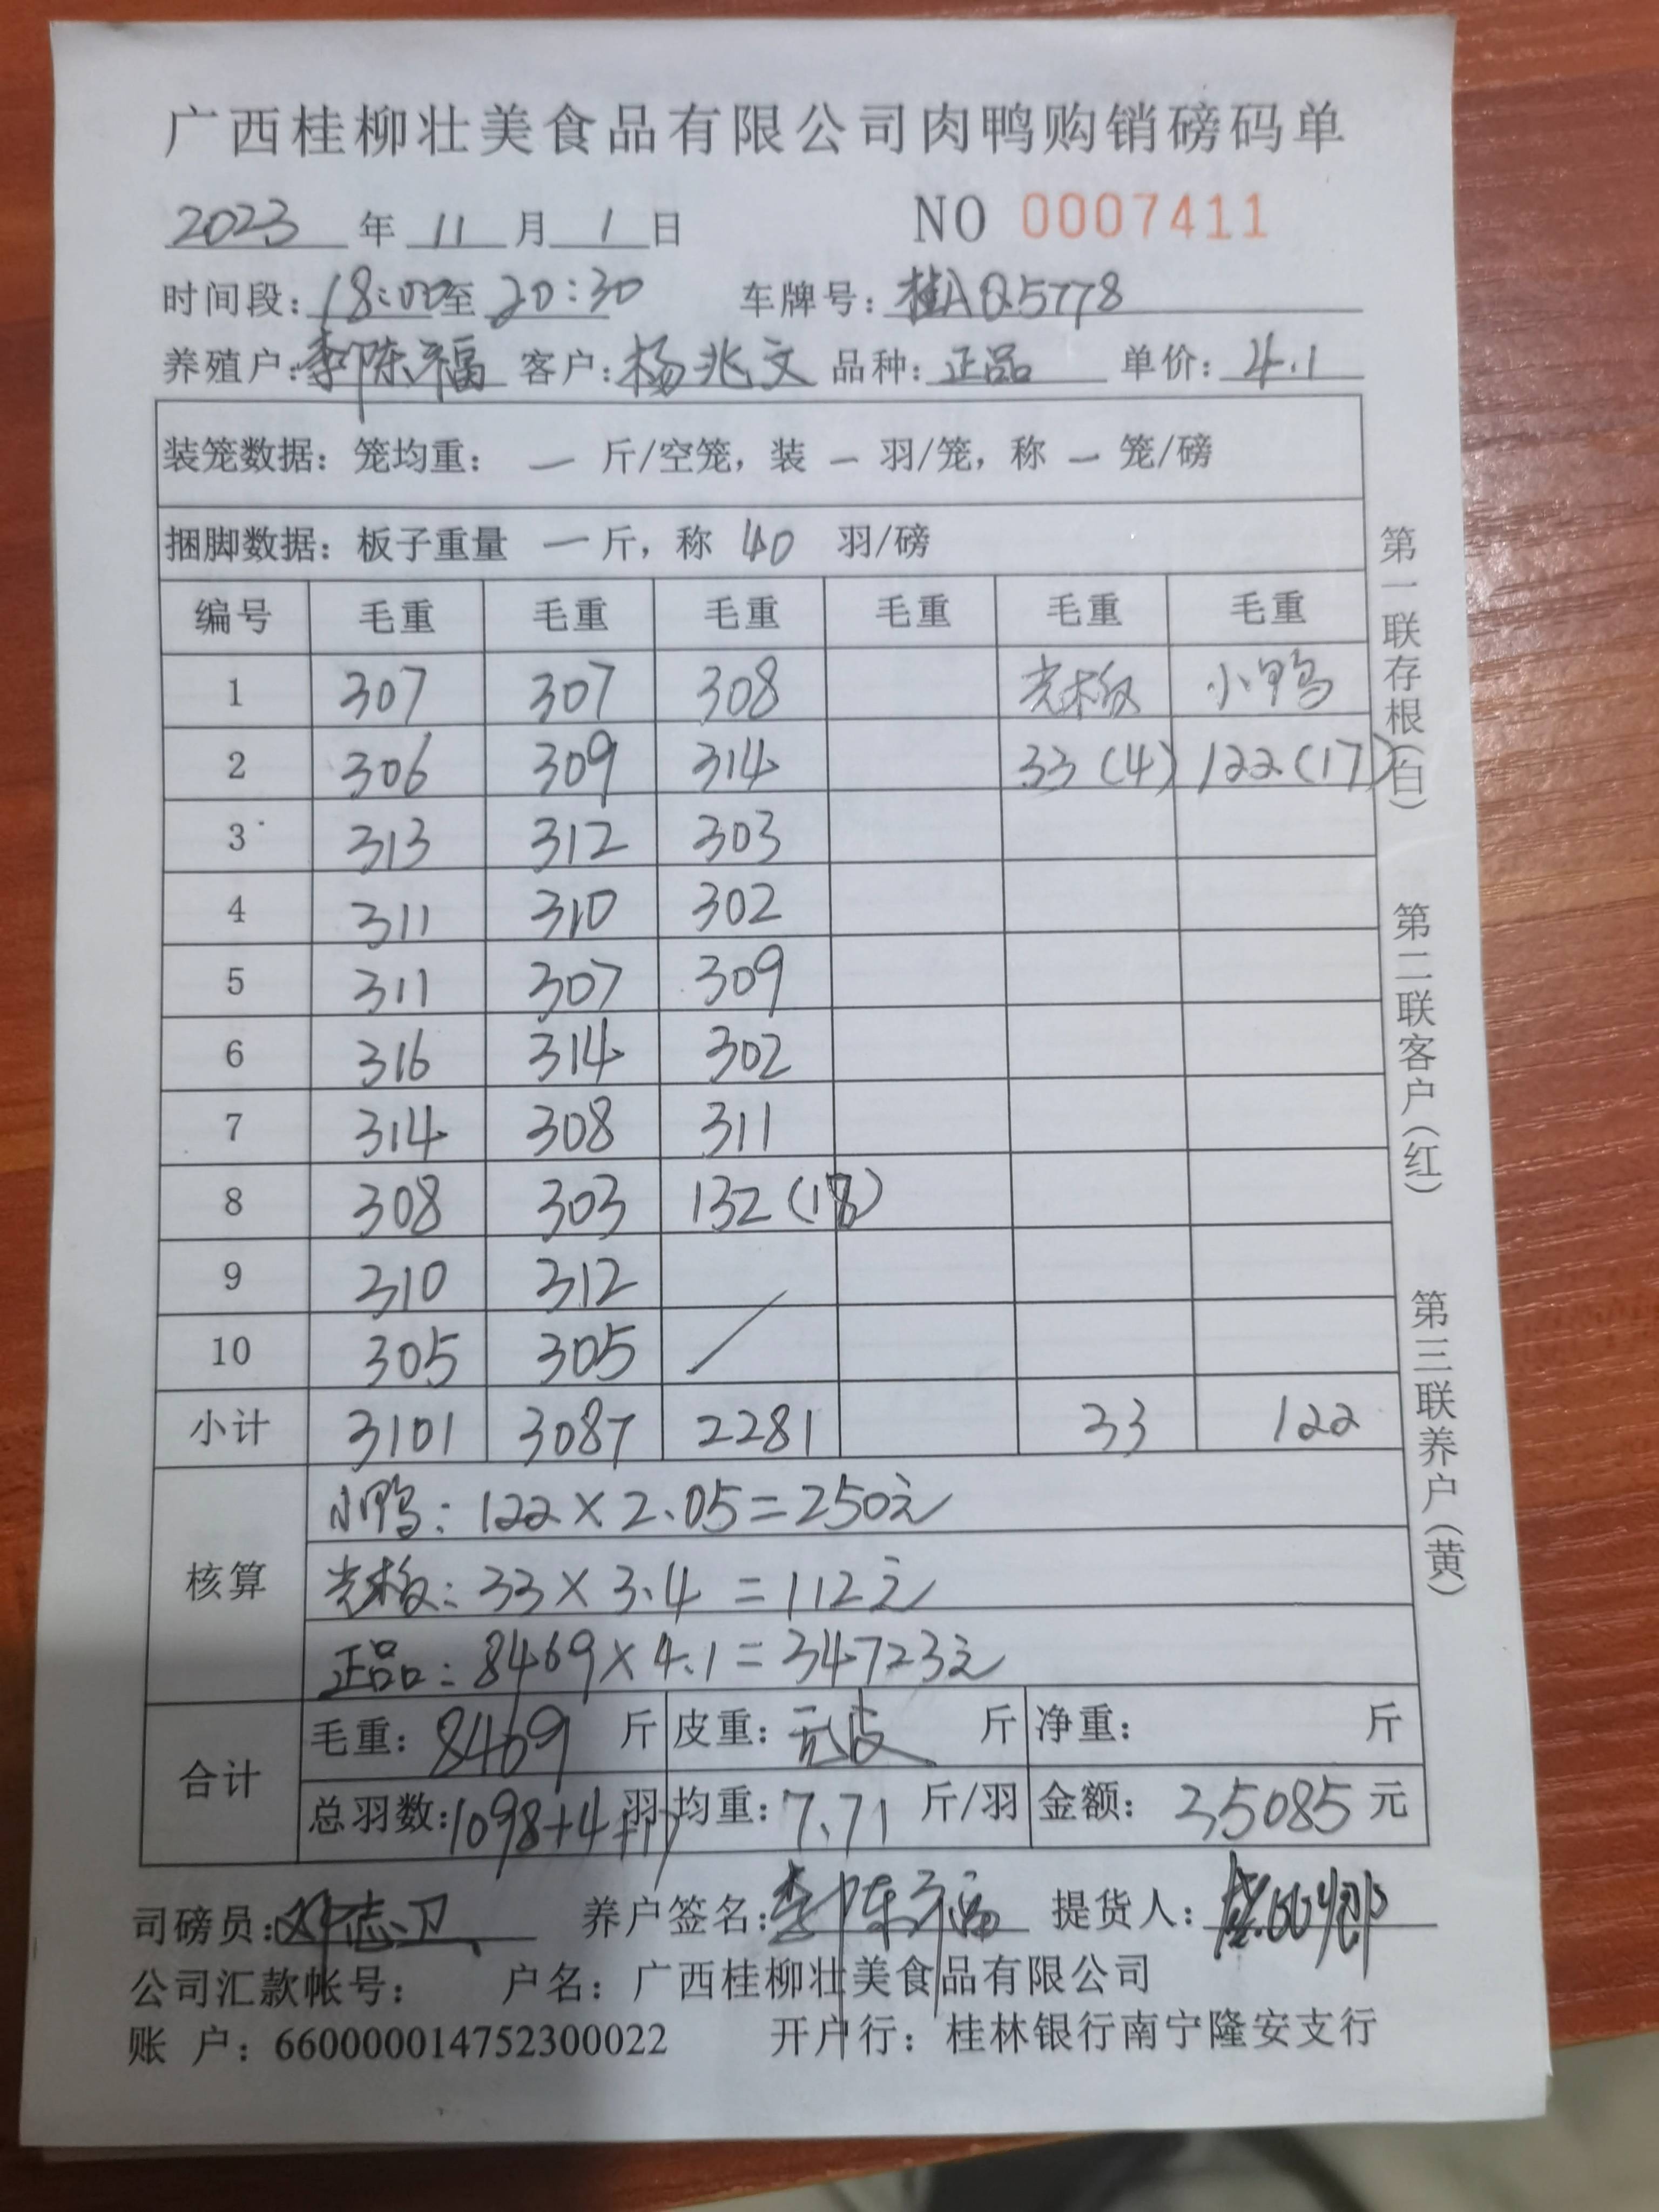 广西桂柳壮美食品有限公司肉鸭购销磅码单
2023 年 11 月 1 日 NO 0007411
时间段: 18:00 至 20:30 车牌号: 桂AQ5778
养殖户: 李陈福 客户: 杨兆文 品种: 正品 单价: 4.1
装笼数据: 笼均重: — 斤/空笼, 装 — 羽/笼, 称 — 笼/磅
捆脚数据: 板子重量 — 斤, 称 40 羽/磅
编号 毛重 毛重 毛重 毛重 毛重 毛重
1 307 307 308 光板 小鸭
2 306 309 314 33(4) 122(17)
3 313 312 303
4 311 310 302
5 311 307 309
6 316 314 302
7 314 308 311
8 308 303 132(18)
9 310 312
10 305 305
小计 3101 3087 2281 33 122
核算
小鸭: 122×2.05=250元
光板: 33×3.4=112元
正品: 8469×4.1=34723元
合计
毛重: 8469 斤 皮重: 元皮 斤 净重: 斤
总羽数: 1098+4+17 羽 均重: 7.71 斤/羽 金额: 35085 元
司磅员: 邓志卫 养户签名: 李陈福 提货人:
公司汇款帐号: 户名: 广西桂柳壮美食品有限公司
账 户: 660000014752300022 开户行: 桂林银行南宁隆安支行
第一联存根(白)
第二联客户(红)
第三联养户(黄)